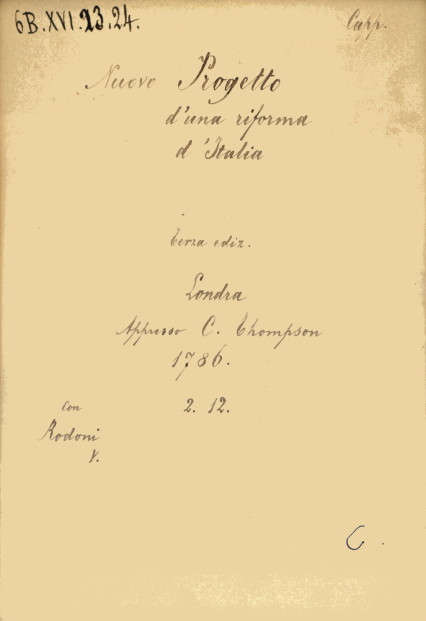 6B.XVI.23.24.
Capp.
Nuovo Progetto
d'una riforma
d'Italia
terza ediz.
Londra
Appresso C. Thompson
1786.
2. 12.
con
Rodoni
V.
C.